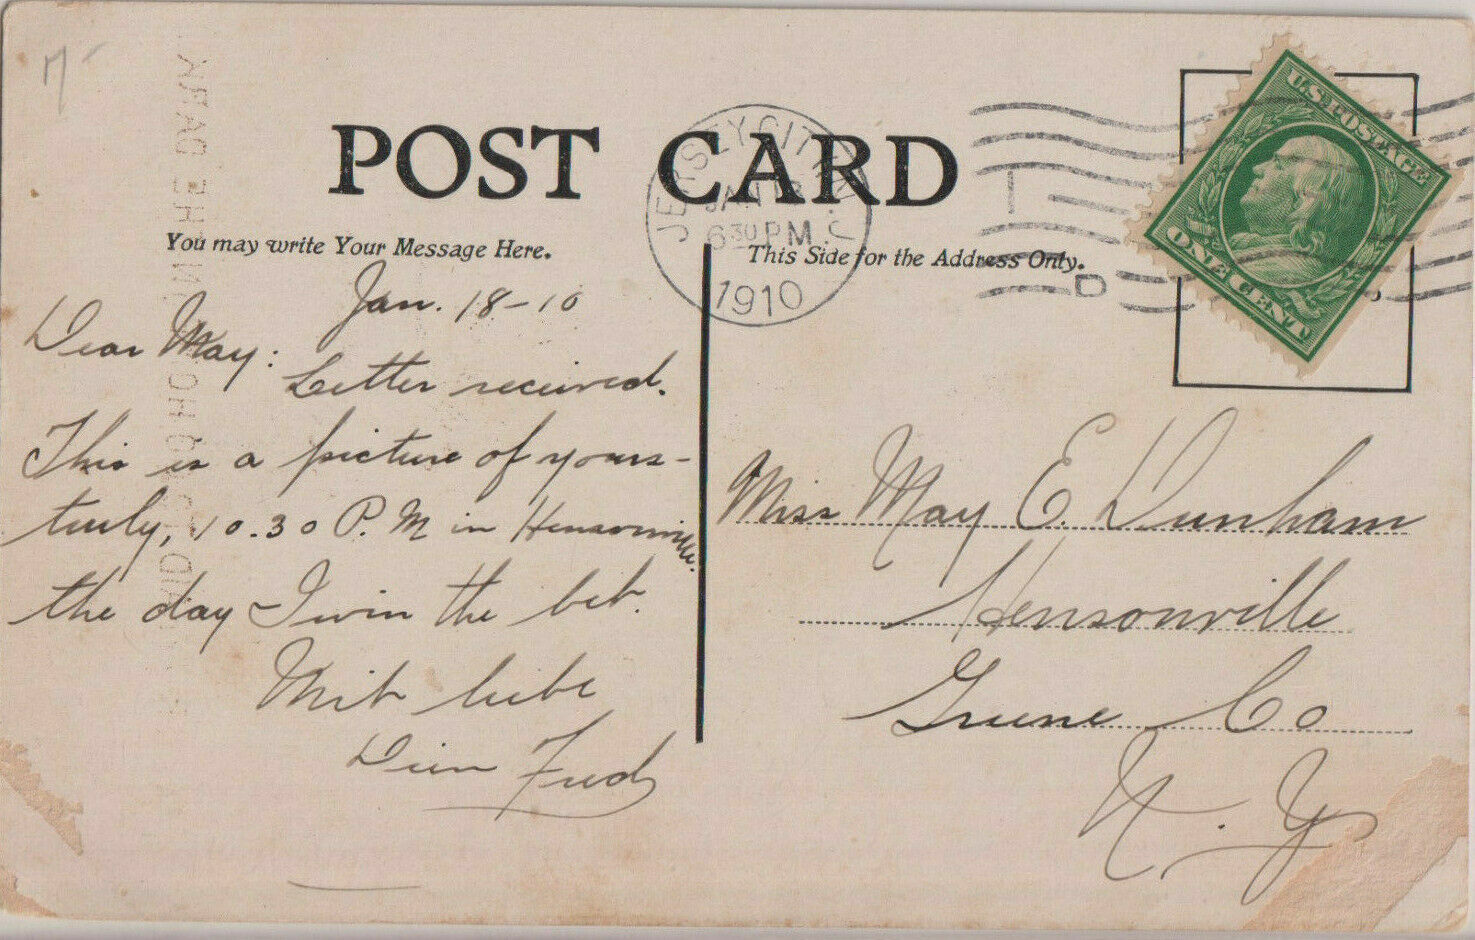 POST CARD
You may write Your Message Here.
This Side for the Address Only.
JERSEY CITY, N.J.
JAN 18
6 30 PM
1910
D
U.S. POSTAGE
ONE CENT
7
Jan. 18-10
Dear May:
Letter received.
This is a picture of yours-
truly, 10.30 P.M in Hensonville.
the day I win the bet.
Mit liebe
Dein Fred
Miss May E. Dunham
Hensonville
Greene Co
N. Y.